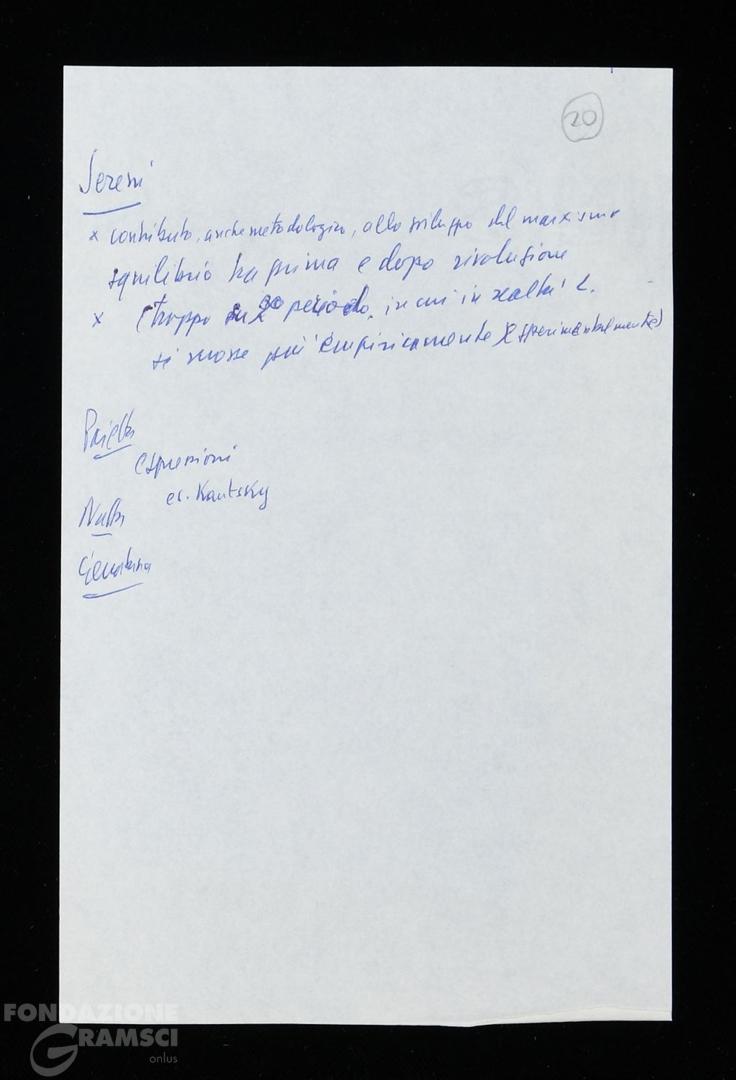 20
Sereni
x contributo, anche metodologico, allo sviluppo del marxismo
squilibrio tra prima e dopo rivoluzione
x (troppo su 2º periodo, in cui in realtà L.
si mosse più empiricamente (sperimentalmente)
Pajetta
espressioni
es. Kautsky
Natta
FONDAZIONE
GRAMSCI
onlus